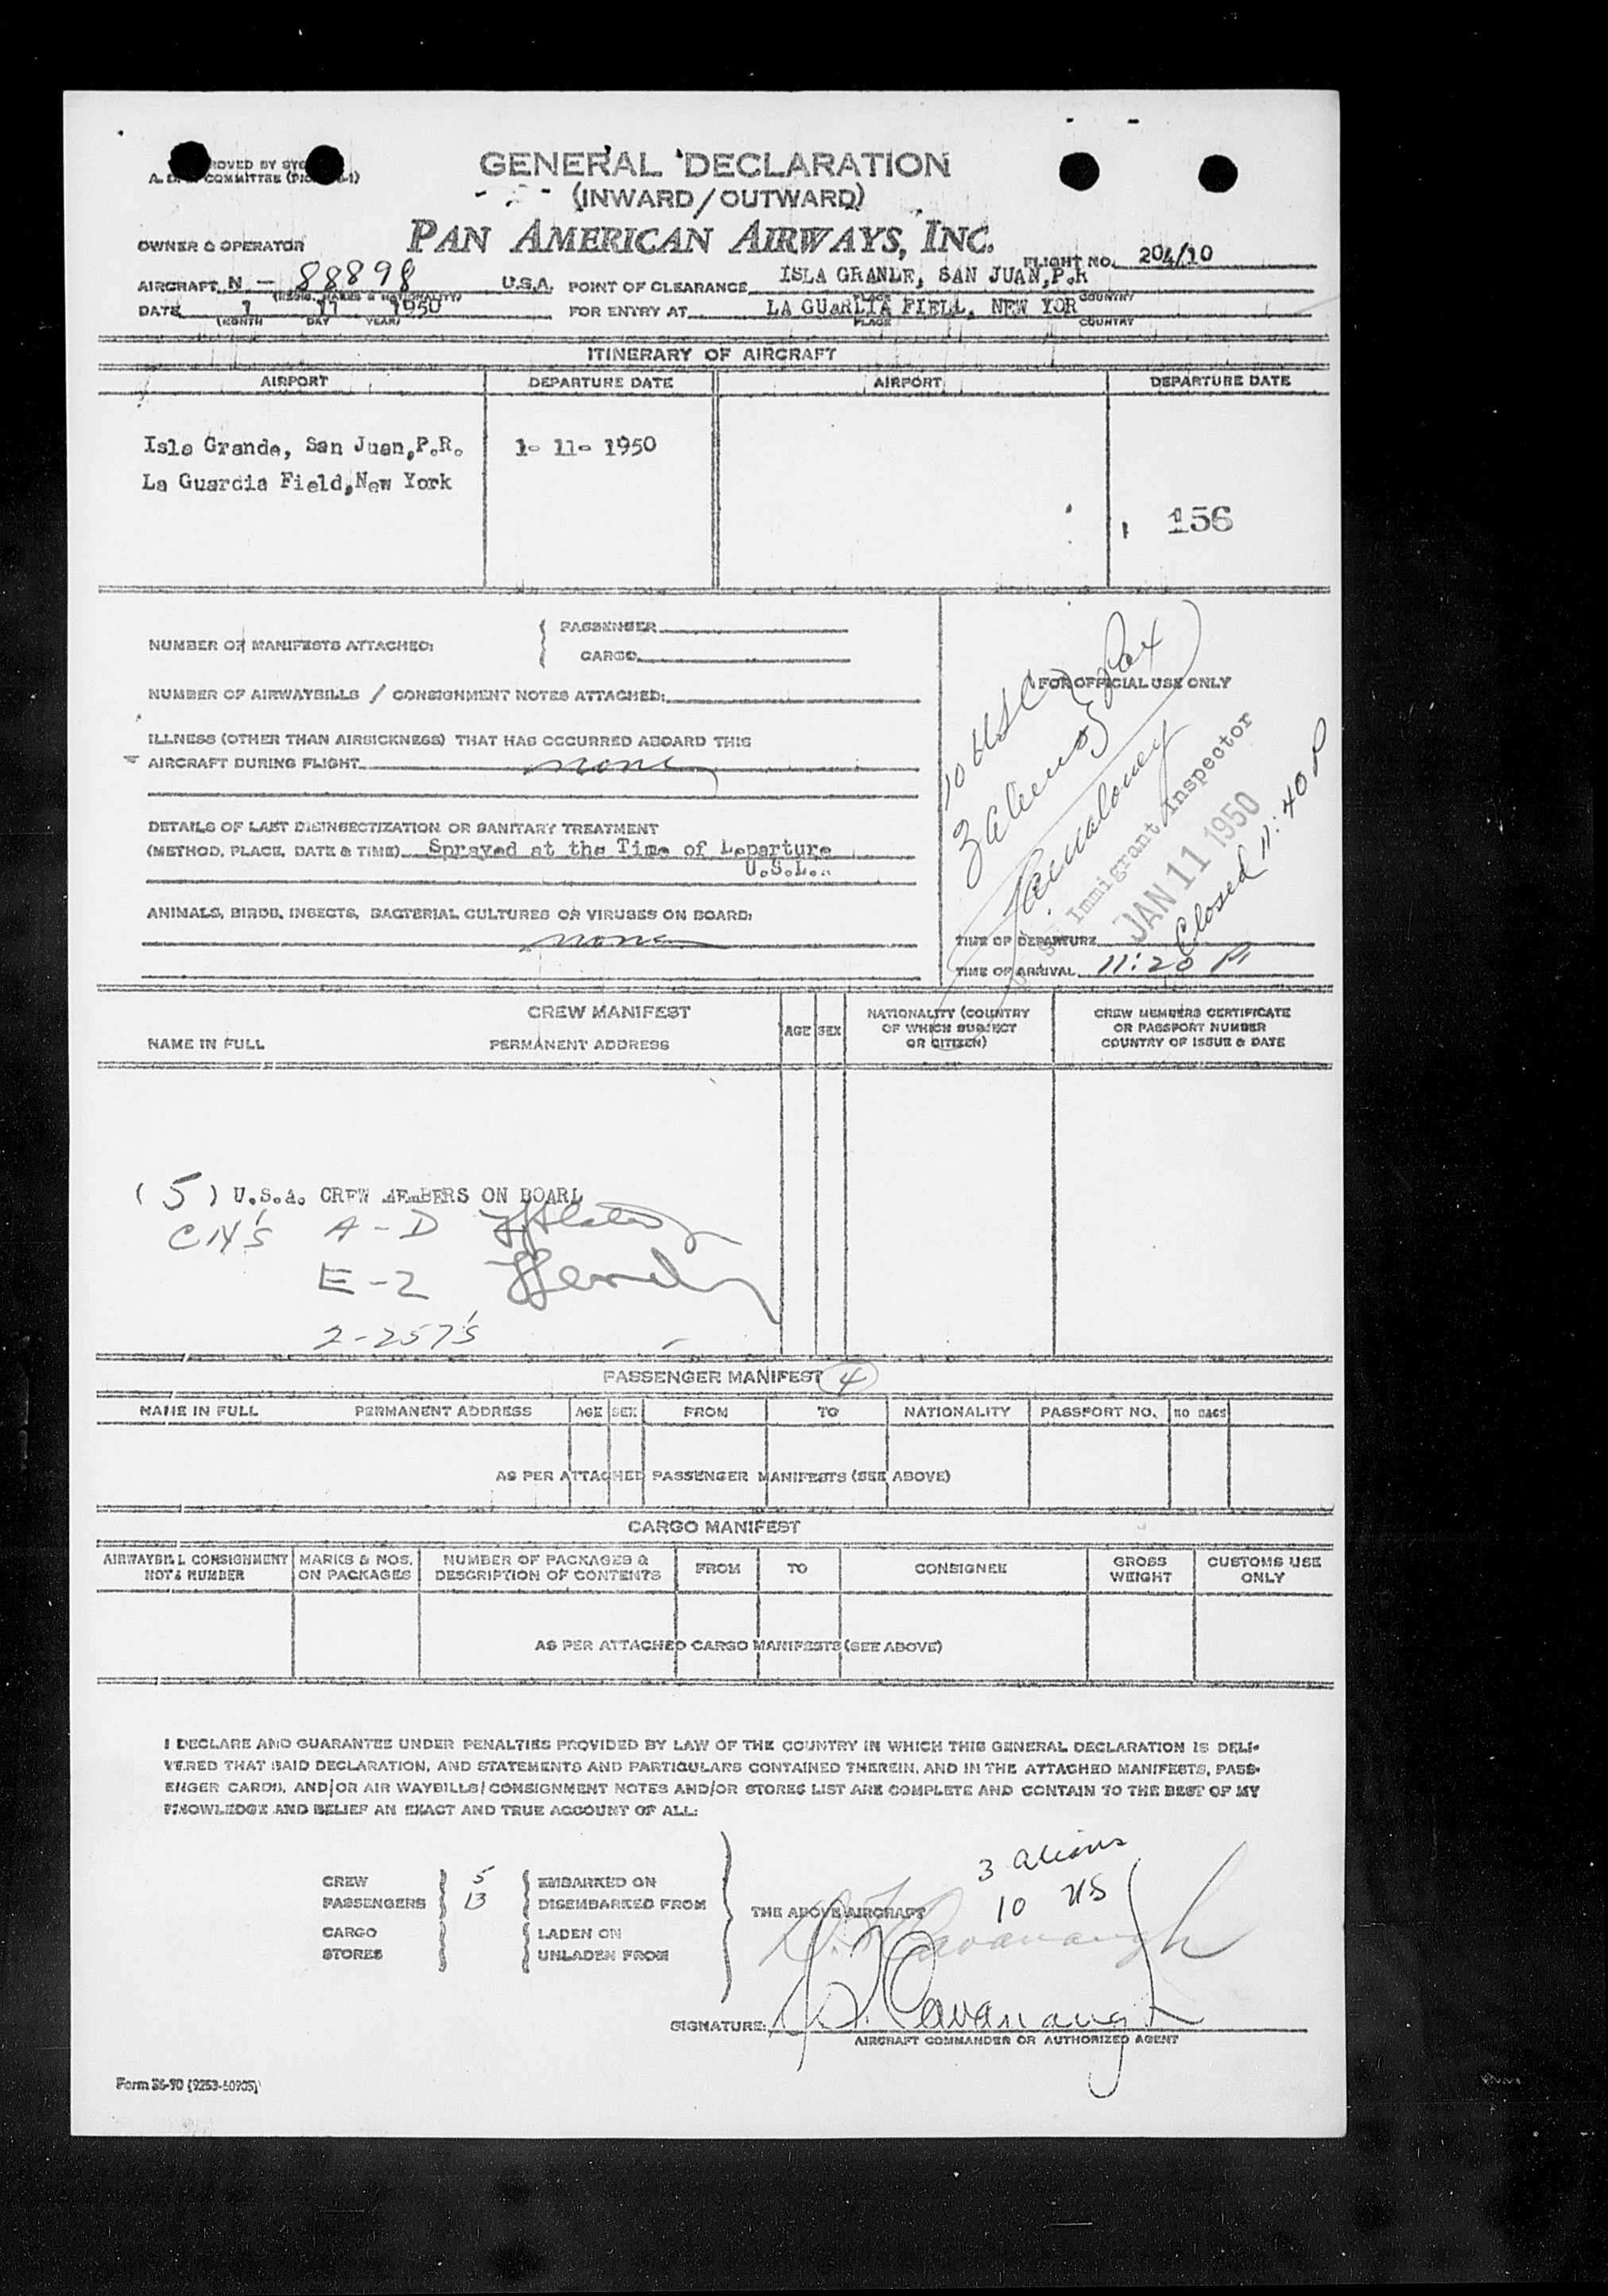 GENERAL DECLARATION
(INWARD/OUTWARD)
PAN AMERICAN AIRWAYS, INC.
OWNER & OPERATOR
FLIGHT NO. 204/10
AIRCRAFT N - 88898 U.S.A. POINT OF CLEARANCE ISLA GRANDE, SAN JUAN,P.R
PLACE COUNTRY
DATE 1 11 1950 FOR ENTRY AT LA GUARDIA FIELD, NEW YOR
(MONTH DAY YEAR) PLACE COUNTRY
ITINERARY OF AIRCRAFT
AIRPORT DEPARTURE DATE AIRPORT DEPARTURE DATE
Isla Grande, San Juan,P.R. 1- 11- 1950
La Guardia Field,New York
156
NUMBER OF MANIFESTS ATTACHED: { PASSENGER
CARGO
NUMBER OF AIRWAYBILLS / CONSIGNMENT NOTES ATTACHED:
FOR OFFICIAL USE ONLY
10 USC
3 aliens
Pax
ILLNESS (OTHER THAN AIRSICKNESS) THAT HAS OCCURRED ABOARD THIS
AIRCRAFT DURING FLIGHT none
DETAILS OF LAST DISINSECTIZATION OR SANITARY TREATMENT
(METHOD, PLACE, DATE & TIME) Sprayed at the Time of Departure
ANIMALS, BIRDS, INSECTS, BACTERIAL CULTURES OR VIRUSES ON BOARD:
none
Immigrant Inspector
JAN 11 1950
Closed 11:40 P
TIME OF DEPARTURE
TIME OF ARRIVAL 11:20 P
CREW MANIFEST
NAME IN FULL PERMANENT ADDRESS AGE SEX NATIONALITY (COUNTRY OF WHICH SUBJECT OR CITIZEN) CREW MEMBERS CERTIFICATE OR PASSPORT NUMBER COUNTRY OF ISSUE & DATE
( 5 ) U.S.A. CREW MEMBERS ON BOARD
A - D
E - Z
2 - 257's
PASSENGER MANIFEST 4
NAME IN FULL PERMANENT ADDRESS AGE SEX FROM TO NATIONALITY PASSPORT NO. NO BAGS
AS PER ATTACHED PASSENGER MANIFESTS (SEE ABOVE)
CARGO MANIFEST
AIRWAYBILL CONSIGNMENT NOTE NUMBER MARKS & NOS. ON PACKAGES NUMBER OF PACKAGES & DESCRIPTION OF CONTENTS FROM TO CONSIGNEE GROSS WEIGHT CUSTOMS USE ONLY
AS PER ATTACHED CARGO MANIFESTS (SEE ABOVE)
I DECLARE AND GUARANTEE UNDER PENALTIES PROVIDED BY LAW OF THE COUNTRY IN WHICH THIS GENERAL DECLARATION IS DELI-
VERED THAT SAID DECLARATION, AND STATEMENTS AND PARTICULARS CONTAINED THEREIN, AND IN THE ATTACHED MANIFESTS, PASS-
ENGER CARDS, AND/OR AIR WAYBILLS/CONSIGNMENT NOTES AND/OR STORES LIST ARE COMPLETE AND CONTAIN TO THE BEST OF MY
KNOWLEDGE AND BELIEF AN EXACT AND TRUE ACCOUNT OF ALL:
3 aliens
10 US
CREW 5 EMBARKED ON
PASSENGERS 13 DISEMBARKED FROM
THE ABOVE AIRCRAFT
CARGO LADEN ON
STORES UNLADEN FROM
Cavanaugh
SIGNATURE: Cavanaugh
AIRCRAFT COMMANDER OR AUTHORIZED AGENT